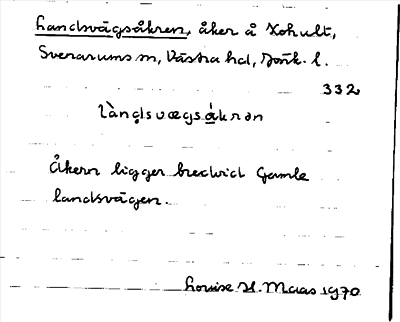 Landsvägsåkren, åker å Kohult,
Svenarums sn, Västra hd, Jönk. l.
332
làn̥dsvægsákrən
Åkern ligger bredvid Gamla
landsvägen.
Louise U. Maas 1970